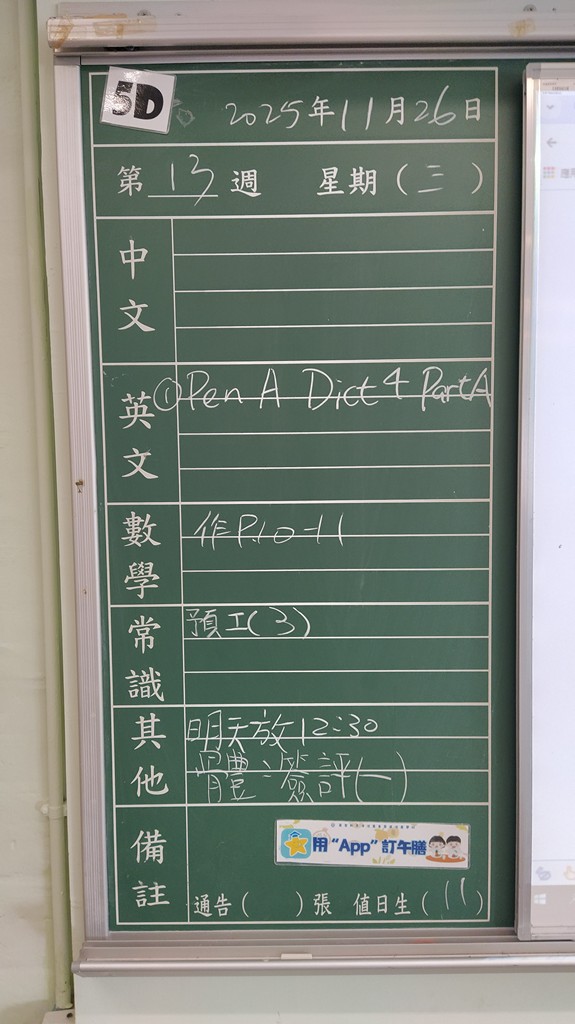 5D
2025年11月26日
第 13 週 星期(三)
中文
英文
①Pen A Dict 4 Part A
數學
作P.10-11
常識
預工(3)
其他
明天放12:30
體:簽評(一)
備註
用"App"訂午膳
通告( )張 值日生(11)